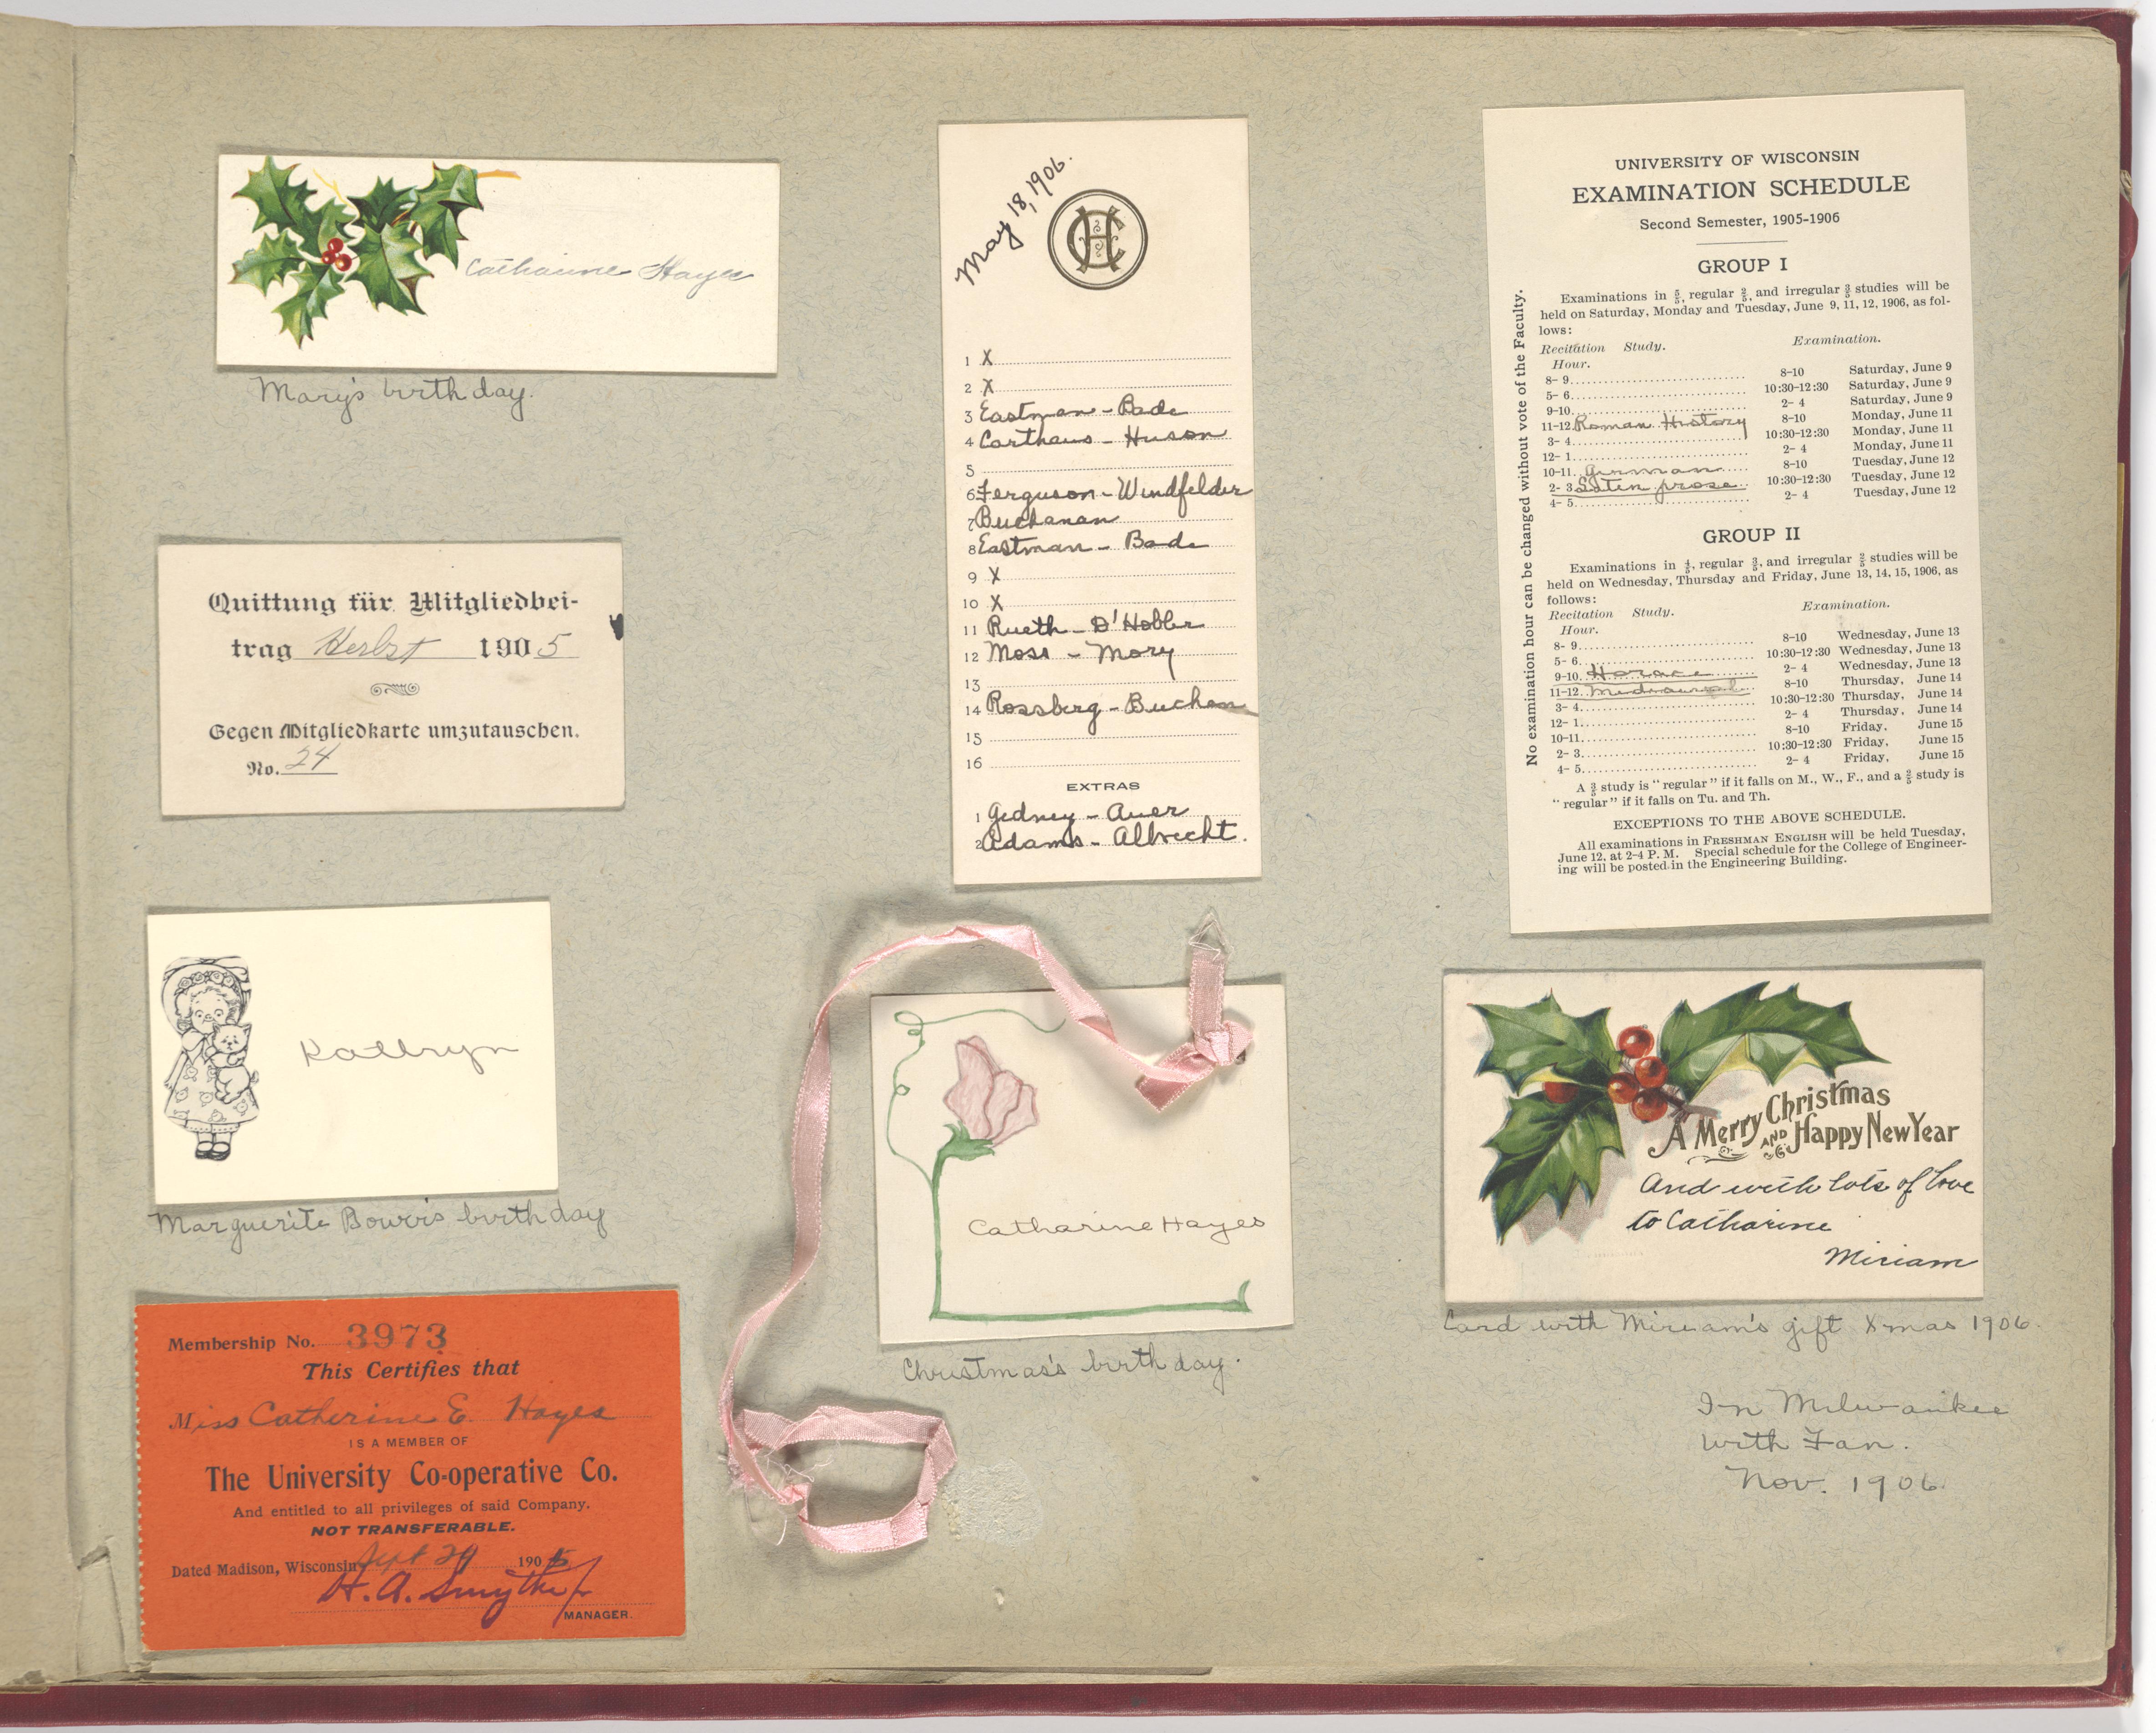 Catharine Hayes
Mary's birthday.
Quittung für Mitgliedbei-
trag Herbst 1905
Gegen Mitgliedkarte umzutauschen.
No. 24
Kathryn
Marguerite Bower's birthday
Membership No. 3973
This Certifies that
Miss Catherine E. Hayes
IS A MEMBER OF
The University Co-operative Co.
And entitled to all privileges of said Company.
NOT TRANSFERABLE.
Dated Madison, Wisconsin Sept 29 1905
H. A. Smythe Jr
MANAGER.
May 18, 1906.
CH
1 X
2 X
3 Eastman - Bade
4 Corthaus - Huson
5
6 Ferguson - Windfelder
7 Buchanan
8 Eastman - Bade
9 X
10 X
11 Rueth - D'Hobler
12 Moss - Mory
13
14 Rossberg - Buchan
15
16
EXTRAS
1 Gedney - Auer
2 Adams - Albrecht.
Catharine Hayes
Christmas's birthday.
UNIVERSITY OF WISCONSIN
EXAMINATION SCHEDULE
Second Semester, 1905-1906
GROUP I
Examinations in 5/5, regular 2/5, and irregular 3/5 studies will be
held on Saturday, Monday and Tuesday, June 9, 11, 12, 1906, as fol-
lows:
Recitation Study. Examination.
Hour.
8- 9 8-10 Saturday, June 9
5- 6 10:30-12:30 Saturday, June 9
9-10 2- 4 Saturday, June 9
11-12 Roman History 8-10 Monday, June 11
3- 4 10:30-12:30 Monday, June 11
12- 1 2- 4 Monday, June 11
10-11 German 8-10 Tuesday, June 12
2- 3 Latin prose 10:30-12:30 Tuesday, June 12
4- 5 2- 4 Tuesday, June 12
GROUP II
Examinations in 4/5, regular 3/5, and irregular 2/5 studies will be
held on Wednesday, Thursday and Friday, June 13, 14, 15, 1906, as
follows:
Recitation Study. Examination.
Hour.
8- 9 8-10 Wednesday, June 13
5- 6 10:30-12:30 Wednesday, June 13
9-10 Horace 2- 4 Wednesday, June 13
11-12 Mediaeval 8-10 Thursday, June 14
3- 4 10:30-12:30 Thursday, June 14
12- 1 2- 4 Thursday, June 14
10-11 8-10 Friday, June 15
2- 3 10:30-12:30 Friday, June 15
4- 5 2- 4 Friday, June 15
A 3/5 study is "regular" if it falls on M., W., F., and a 2/5 study is
"regular" if it falls on Tu. and Th.
EXCEPTIONS TO THE ABOVE SCHEDULE.
All examinations in FRESHMAN ENGLISH will be held Tuesday,
June 12, at 2-4 P. M. Special schedule for the College of Engineer-
ing will be posted in the Engineering Building.
No examination hour can be changed without vote of the Faculty.
A Merry Christmas
AND Happy New Year
And with lots of love
to Catharine
Miriam
Card with Miriam's gift Xmas 1906.
In Milwaukee
with Fan.
Nov. 1906.